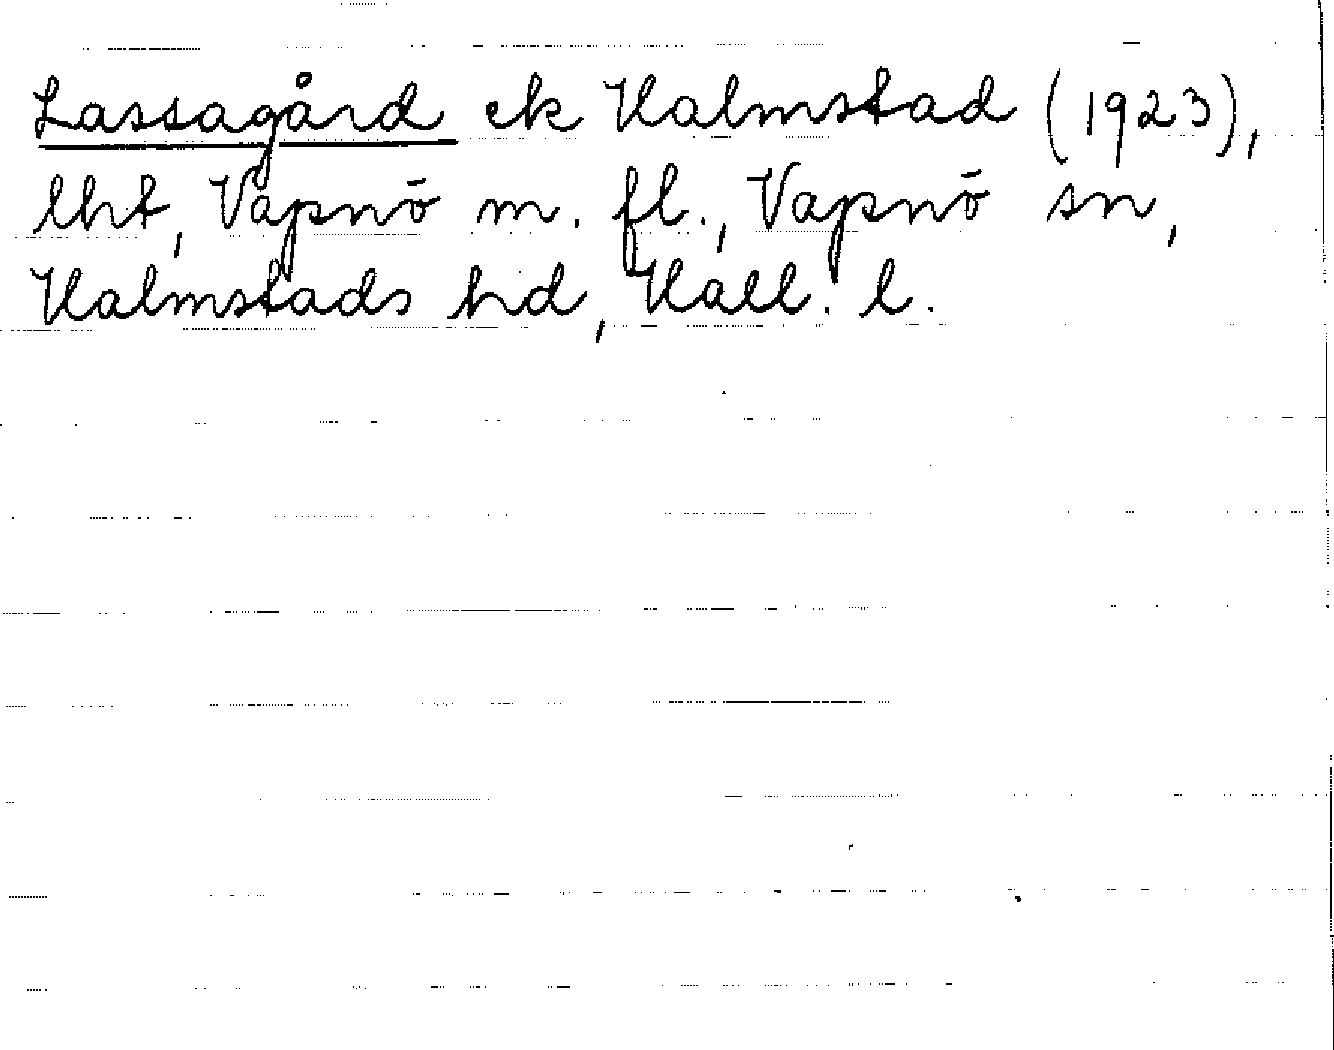 Lassagård ek Halmstad (1923),
lht, Vapnö m. fl., Vapnö sn,
Halmstads hd, Hall. l.